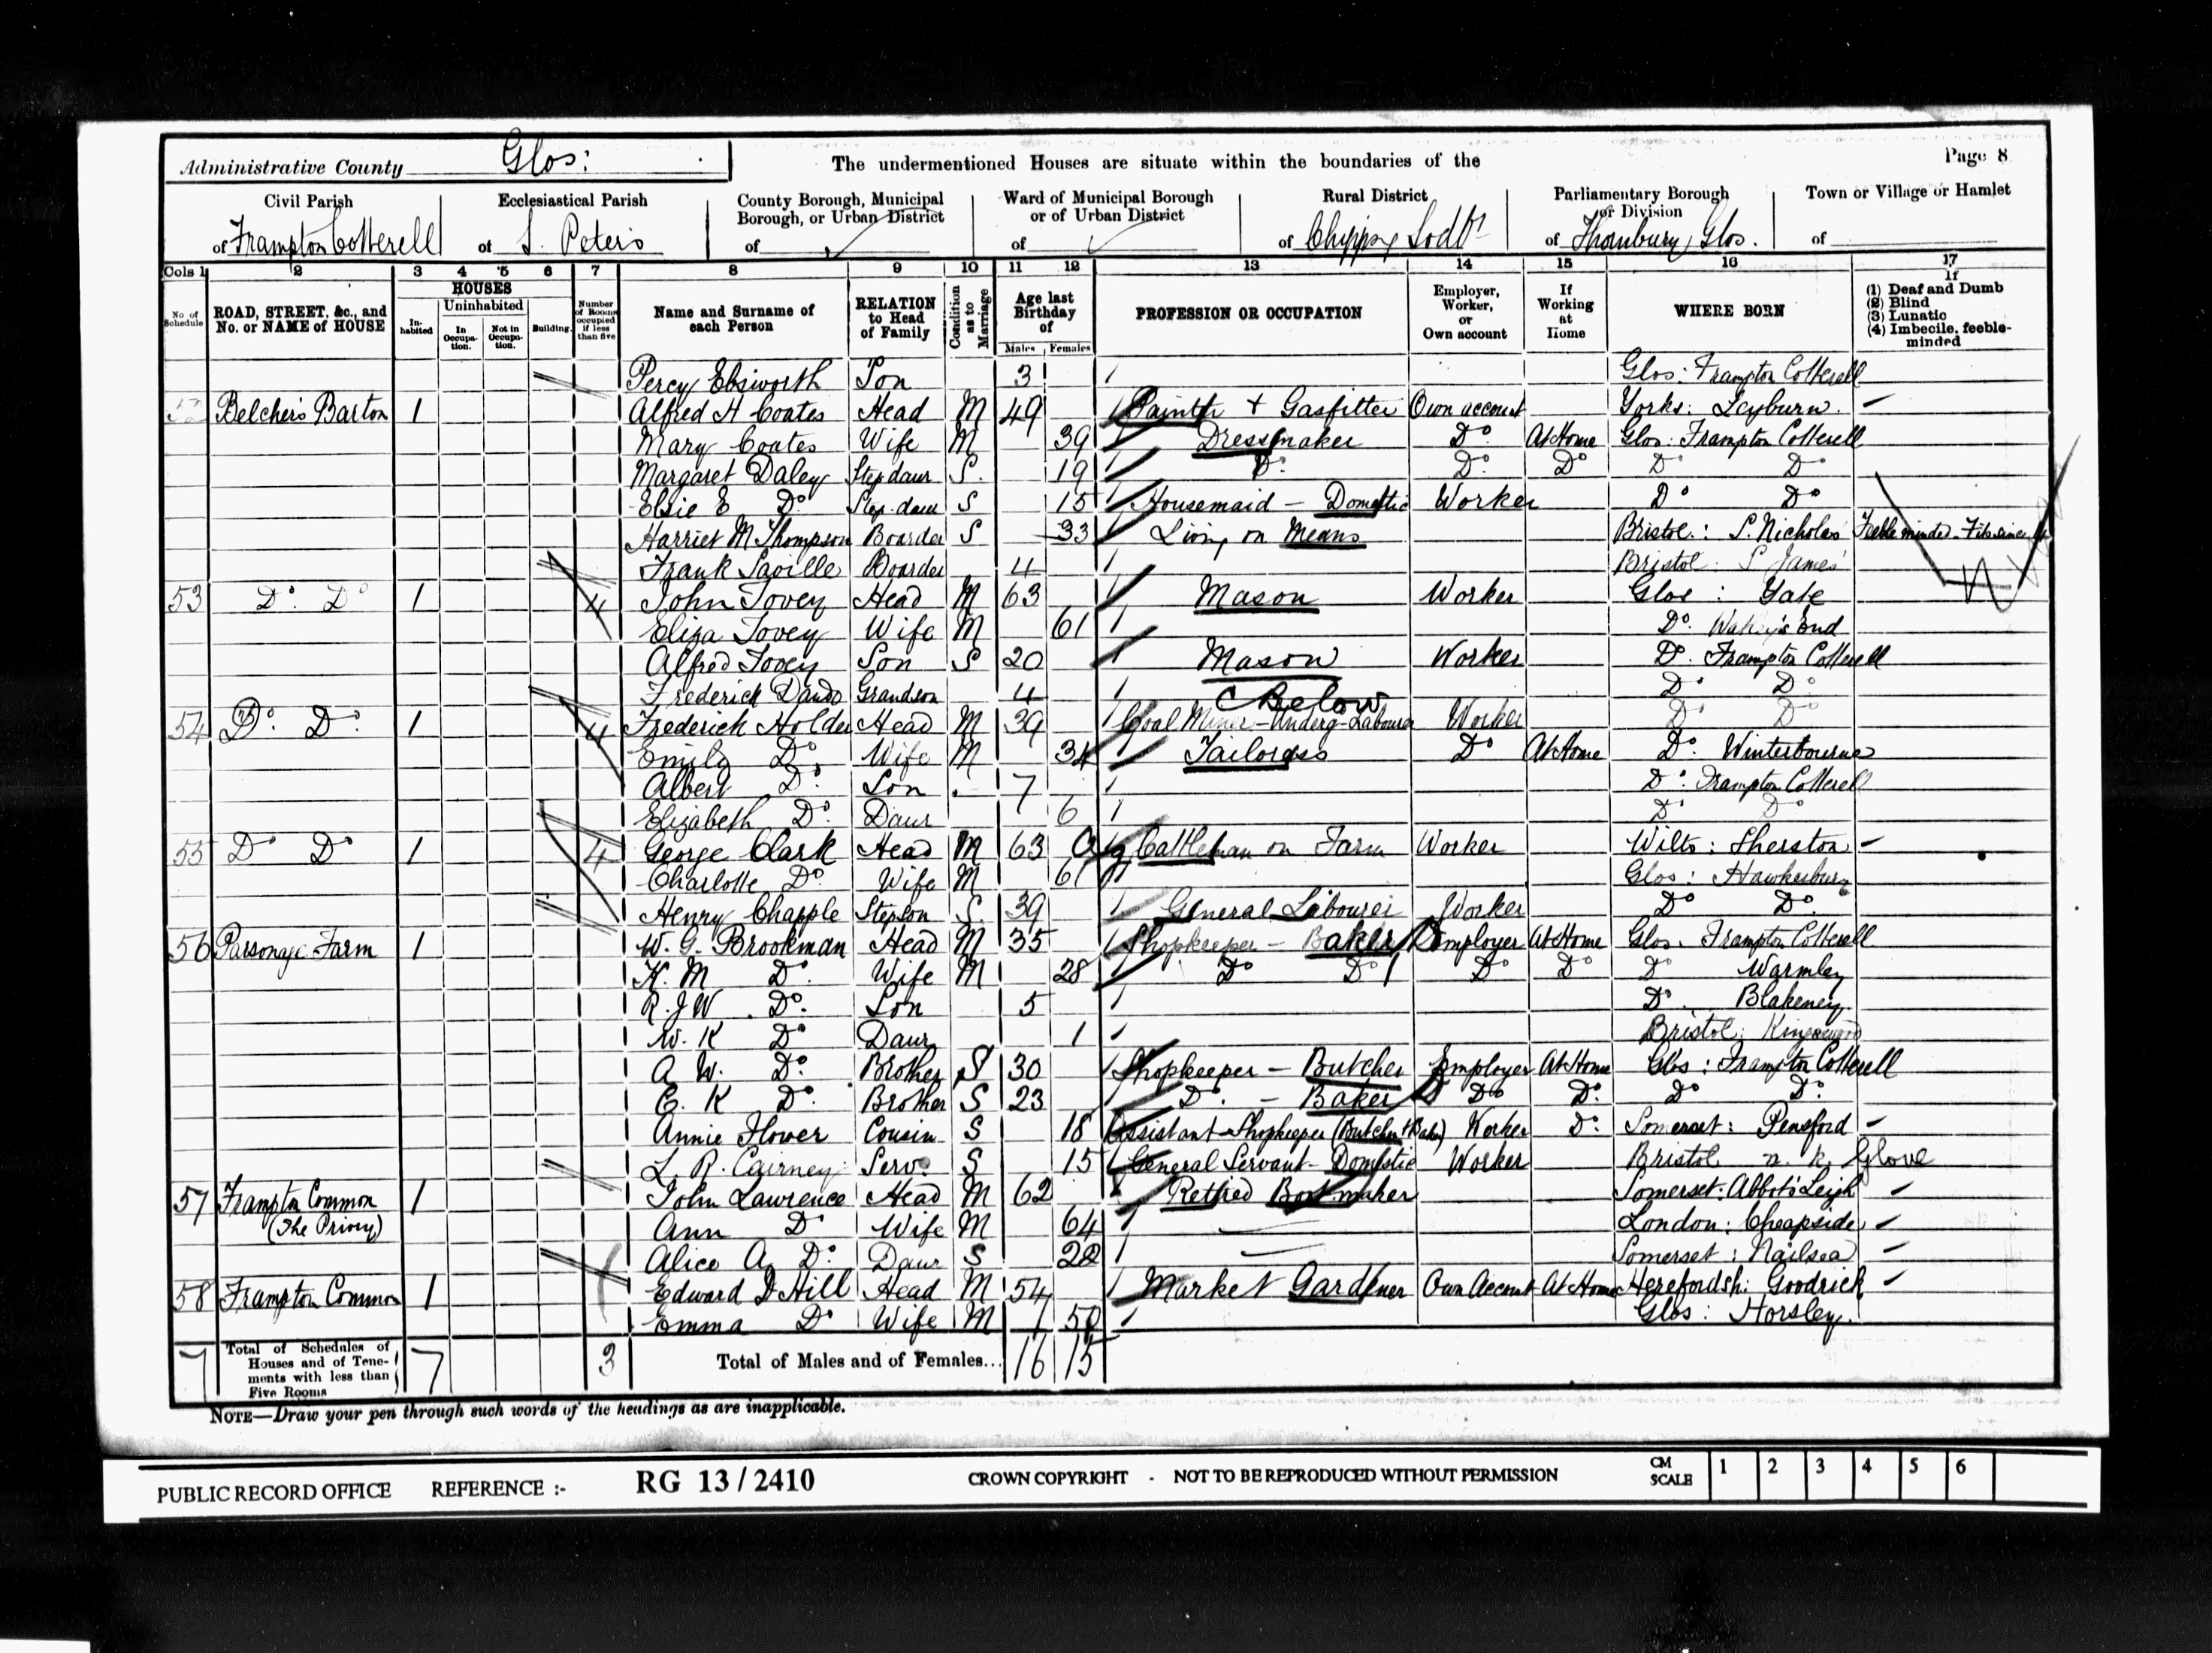 Administrative County Glos: The undermentioned Houses are situate within the boundaries of the Page 8
Civil Parish Ecclesiastical Parish County Borough, Municipal Borough, or Urban District Ward of Municipal Borough or of Urban District Rural District Parliamentary Borough or Division Town or Village or Hamlet
of Frampton Cotterell of S. Peter's of of of Chipping Sodb^y of Thornbury, Glos. of
Cols 1 2 3 4 5 6 7 8 9 10 11 12 13 14 15 16 17
No of Schedule ROAD, STREET, &c., and No. or NAME of HOUSE HOUSES Inhabited Uninhabited In Occupation. Not in Occupation. Building. Number of Rooms occupied if less than five Name and Surname of each Person RELATION to Head of Family Condition as to Marriage Age last Birthday of Males Females PROFESSION OR OCCUPATION Employer, Worker, or Own account If Working at Home WHERE BORN If (1) Deaf and Dumb (2) Blind (3) Lunatic (4) Imbecile, feeble-minded
Percy Ebsworth Son 3 Glos: Frampton Cotterell
52 Belcher's Barton 1 Alfred H Coates Head M 49 Painter + Gasfitter Own account Yorks: Leyburn.
Mary Coates Wife M 39 Dressmaker Do At Home Glos: Frampton Cotterell
Margaret Daley Stepdaur S. 19 Do. Do. Do Do Do
Elsie E Do Step-daur S 15 Housemaid - Domestic Worker Do Do
Harriet M Thompson Boarder S 33 Living on Means Bristol: S. Nicholas Feeble minded - Fits since
Frank Saville Boarder 4 Bristol: S James
53 Do. Do 1 4 John Tovey Head M 63 Mason Worker Glos: Yate
Eliza Tovey Wife M 61 Do. End
Alfred Tovey Son S 20 Mason Worker Do. Frampton Cotterell
Frederick Dando Grandson 4 Do Do
Below
54 Do. Do. 1 4 Frederick Holder Head M 39 Coal Miner - Underg - Labourer Worker Do Do
Emily Do. Wife M 34 Tailoress Do At Home Do. Winterbourne
Albert Do. Son . 7 Do: Frampton Cotterell
Elizabeth Do. Daur 6 Do Do
55 Do Do 1 4 George Clark Head M 63 Ag Cattleman on Farm Worker Wilts: Sherston
Charlotte Do. Wife M 61 Glos: Hawkesbury
Henry Chapple Stepson S. 39 General Labourer Worker Do Do.
56 Parsonage Farm 1 W. G. Brookman Head M 35 Shopkeeper - Baker Employer At Home Glos. Frampton Cotterell
K. M Do. Wife M 28 Do Do Do Do Do Warmley
R. J W. Do. Son 5 Do. Blakeney
W. K Do Daur 1 Bristol: Kingswood
A W. Do. Brother S 30 Shopkeeper - Butcher Employer At Home Glos: Frampton Cotterell
E. K Do. Brother S 23 Do. - Baker Do Do. Do Do.
Annie Flower Cousin S 18 Assistant Shopkeeper (Butcher + Baker) Worker Do: Somerset: Pensford
L. R. Cairney Serv. S 15 General Servant - Domestic Worker Bristol n. k. Glove
57 Frampton Common 1 John Lawrence Head M 62 Retired Bootmaker Somerset: Abbots Leigh
(The Priory) Ann Do Wife M 64 London: Cheapside
Alice A. Do. Daur S 22 Somerset: Nailsea
58 Frampton Common 1 Edward D Hill Head M 54 Market Gardener Own Account At Home Herefordsh: Goodrick
Emma Do Wife M 50 Glos: Horsley.
7 Total of Schedules of Houses and of Tenements with less than Five Rooms 7 3 Total of Males and of Females... 16 15
NOTE—Draw your pen through such words of the headings as are inapplicable.
PUBLIC RECORD OFFICE REFERENCE :- RG 13 / 2410 CROWN COPYRIGHT - NOT TO BE REPRODUCED WITHOUT PERMISSION CM SCALE 1 2 3 4 5 6